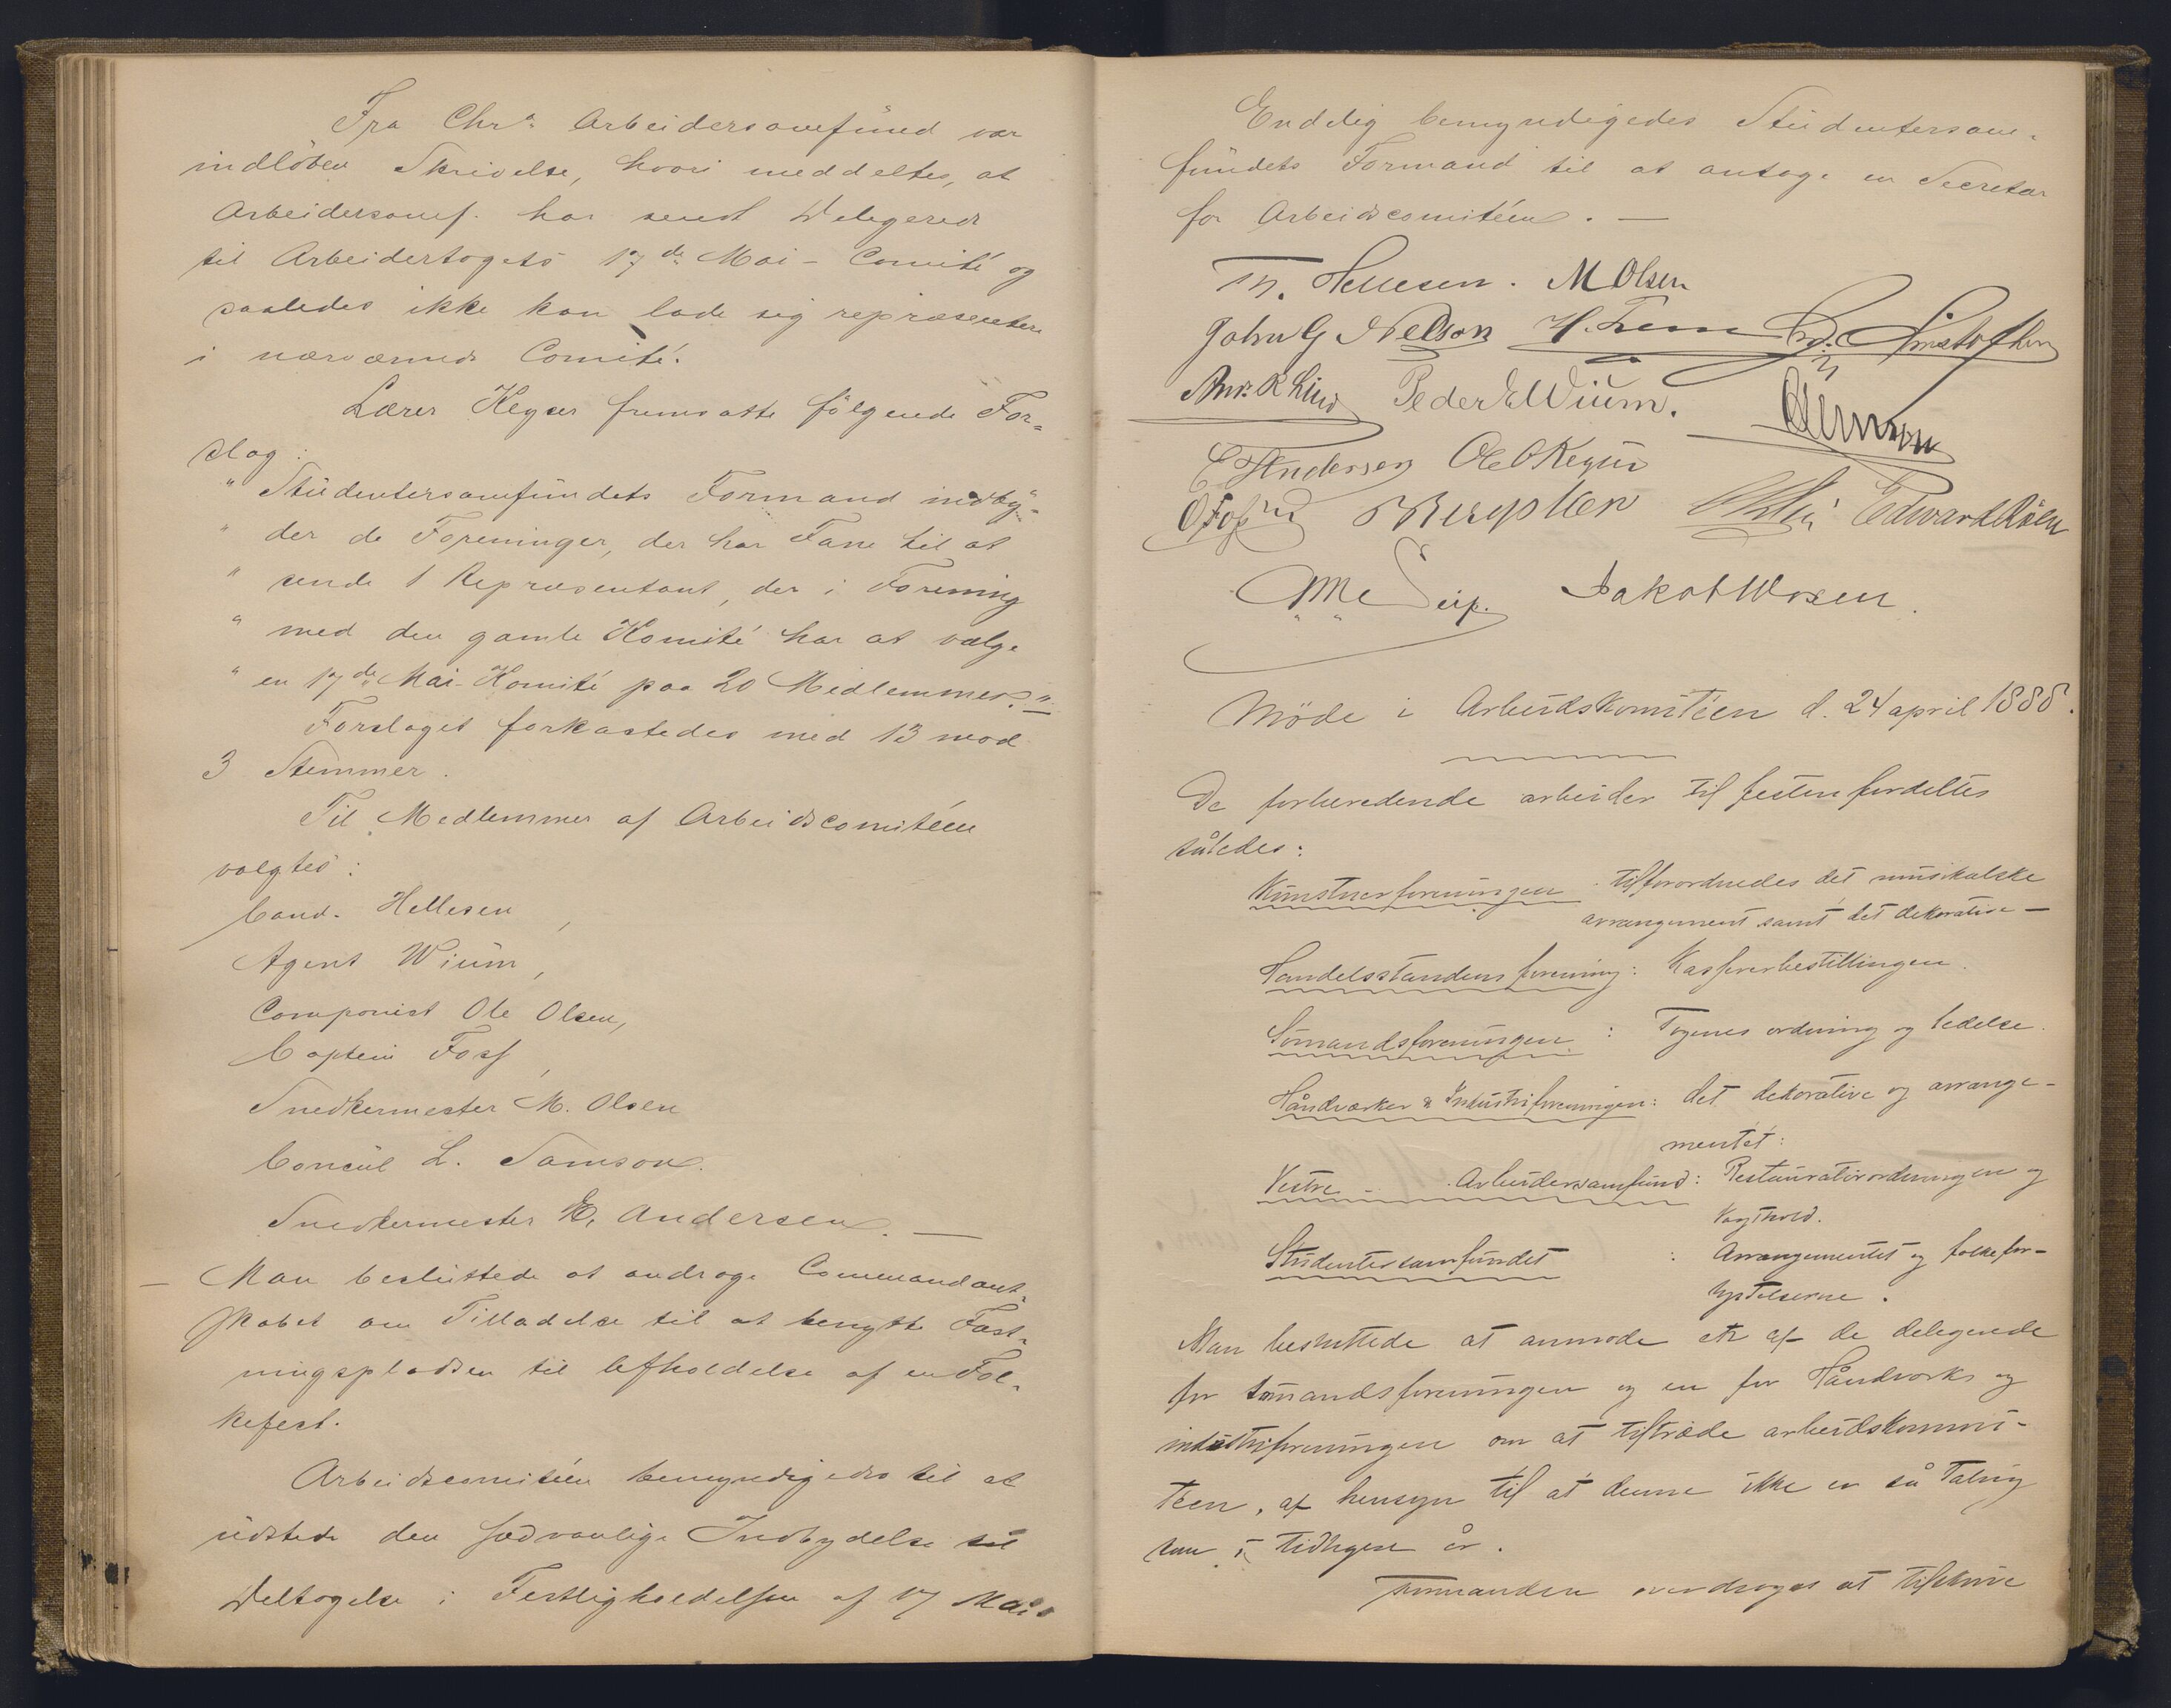 Fra Chr.ª Arbeidersamfund var
indløben Skrivelse, hvori meddeltes, at
Arbeidersamf. har sendt Delegerede
til Arbeidertogets 17de Mai-Comité og
saaledes ikke kan lade sig repræsentere
i nærværende Comité.
Lærer Keyser fremsatte følgende For=
slag:
" Studentersamfundets Formand indby=
" der de Foreninger, der har Fane til at
" sende 1 Repræsentant, der i Forening
" med den gamle Komité har at vælge
" en 17de Mai-Komité paa 20 Medlemmer."
Forslaget forkastedes med 13 mod
3 Stemmer.
Til Medlemmer af Arbeidscomitéen
valgtes:
Cand. Hellesen,
Agent Wium,
Componist Ole Olsen,
Captein Foss,
Snedkermester M. Olsen
Consul L. Samson.
Snedkermester E. Andersen. —
— Man besluttede at andrage Commandant=
skabet om Tilladelse til at benytte Fæst=
ningspladsen til Afholdelse af en Fol=
kefest.
Arbeidscomitéen bemyndigedes til at
udstede den sædvanlige Indbydelse til
Deltagelse i Festligholdelsen af 17 Mai.
Endelig bemyndigedes Studentersam=
fundets Formand til at antage en Secretær
for Arbeidscomitéen. —
Th. Hellesen. M Olsen
John G Nelson H.
Andr. R Lind Peder E Wium.
E Andersen Ole O Keyser
O Foss Edward Olsen
Jakob Wosen.
Møde i Arbeidskomitéen d. 24 april 1888.
De forberedende arbeider til festen fordeltes
således:
Kunstnerforeningen tilforordnedes det musikalske
arrangement samt det dekorative —
Handelsstandens forening: Kasserer bestillingen.
Sømandsforeningen: Togenes ordning og ledelse.
Håndværker & Industriforeningen: det dekorative og arrange-
mentet:
Vestre Arbeidersamfund: Restaurativordningen og
Vagthold.
Studentersamfundet: Arrangementet og folkefor-
lystelserne.
Man besluttede at anmode en af de delegerede
for sømandsforeningen og en for Håndverks og
industriforeningen om at tiltræde arbeidskommi-
teen, af hensyn til at denne ikke er så talrig
som i tidligere år.
Formanden overdroges at tilskrive